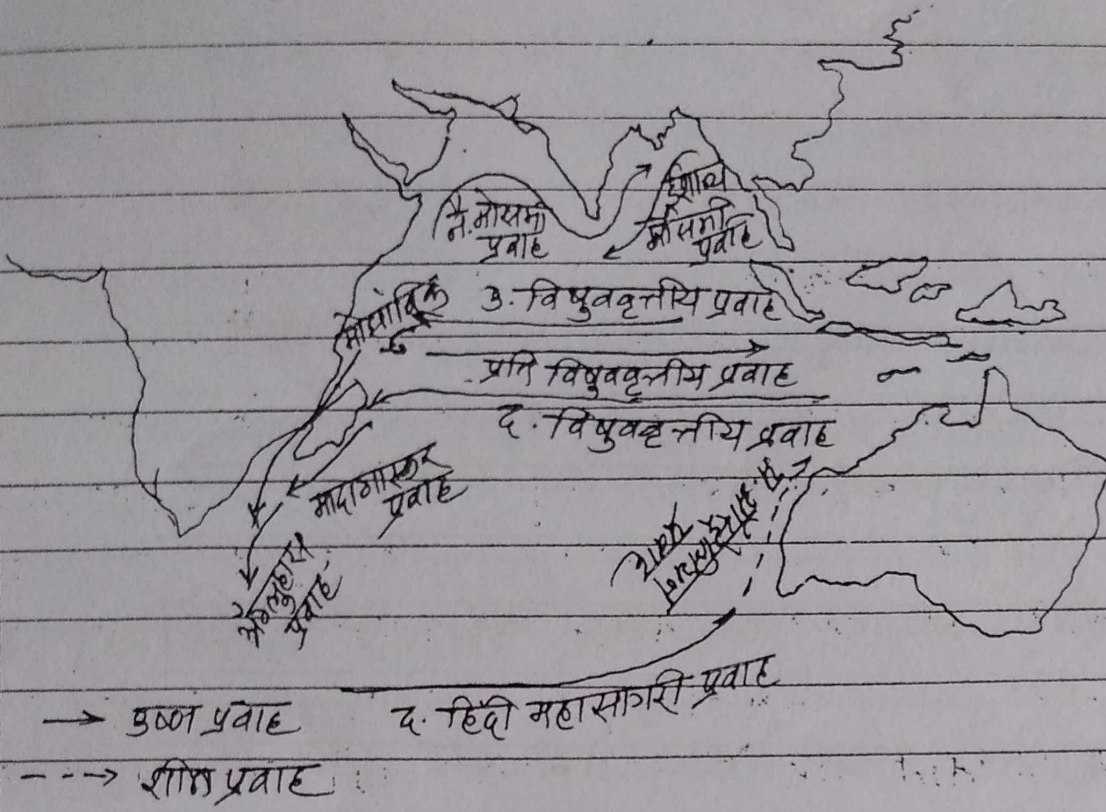 नै. मोसमी
प्रवाह
ईशान्य
मोसमी
प्रवाह
मोझांबिक
उ. विषुववृत्तीय प्रवाह
प्रति विषुववृत्तीय प्रवाह
द. विषुववृत्तीय प्रवाह
मादागास्कर
प्रवाह
अँगुलुहास
प्रवाह
प. ऑस्ट्रेलियन
प्रवाह
द. हिंदी महासागरी प्रवाह
उष्ण प्रवाह
शीत प्रवाह